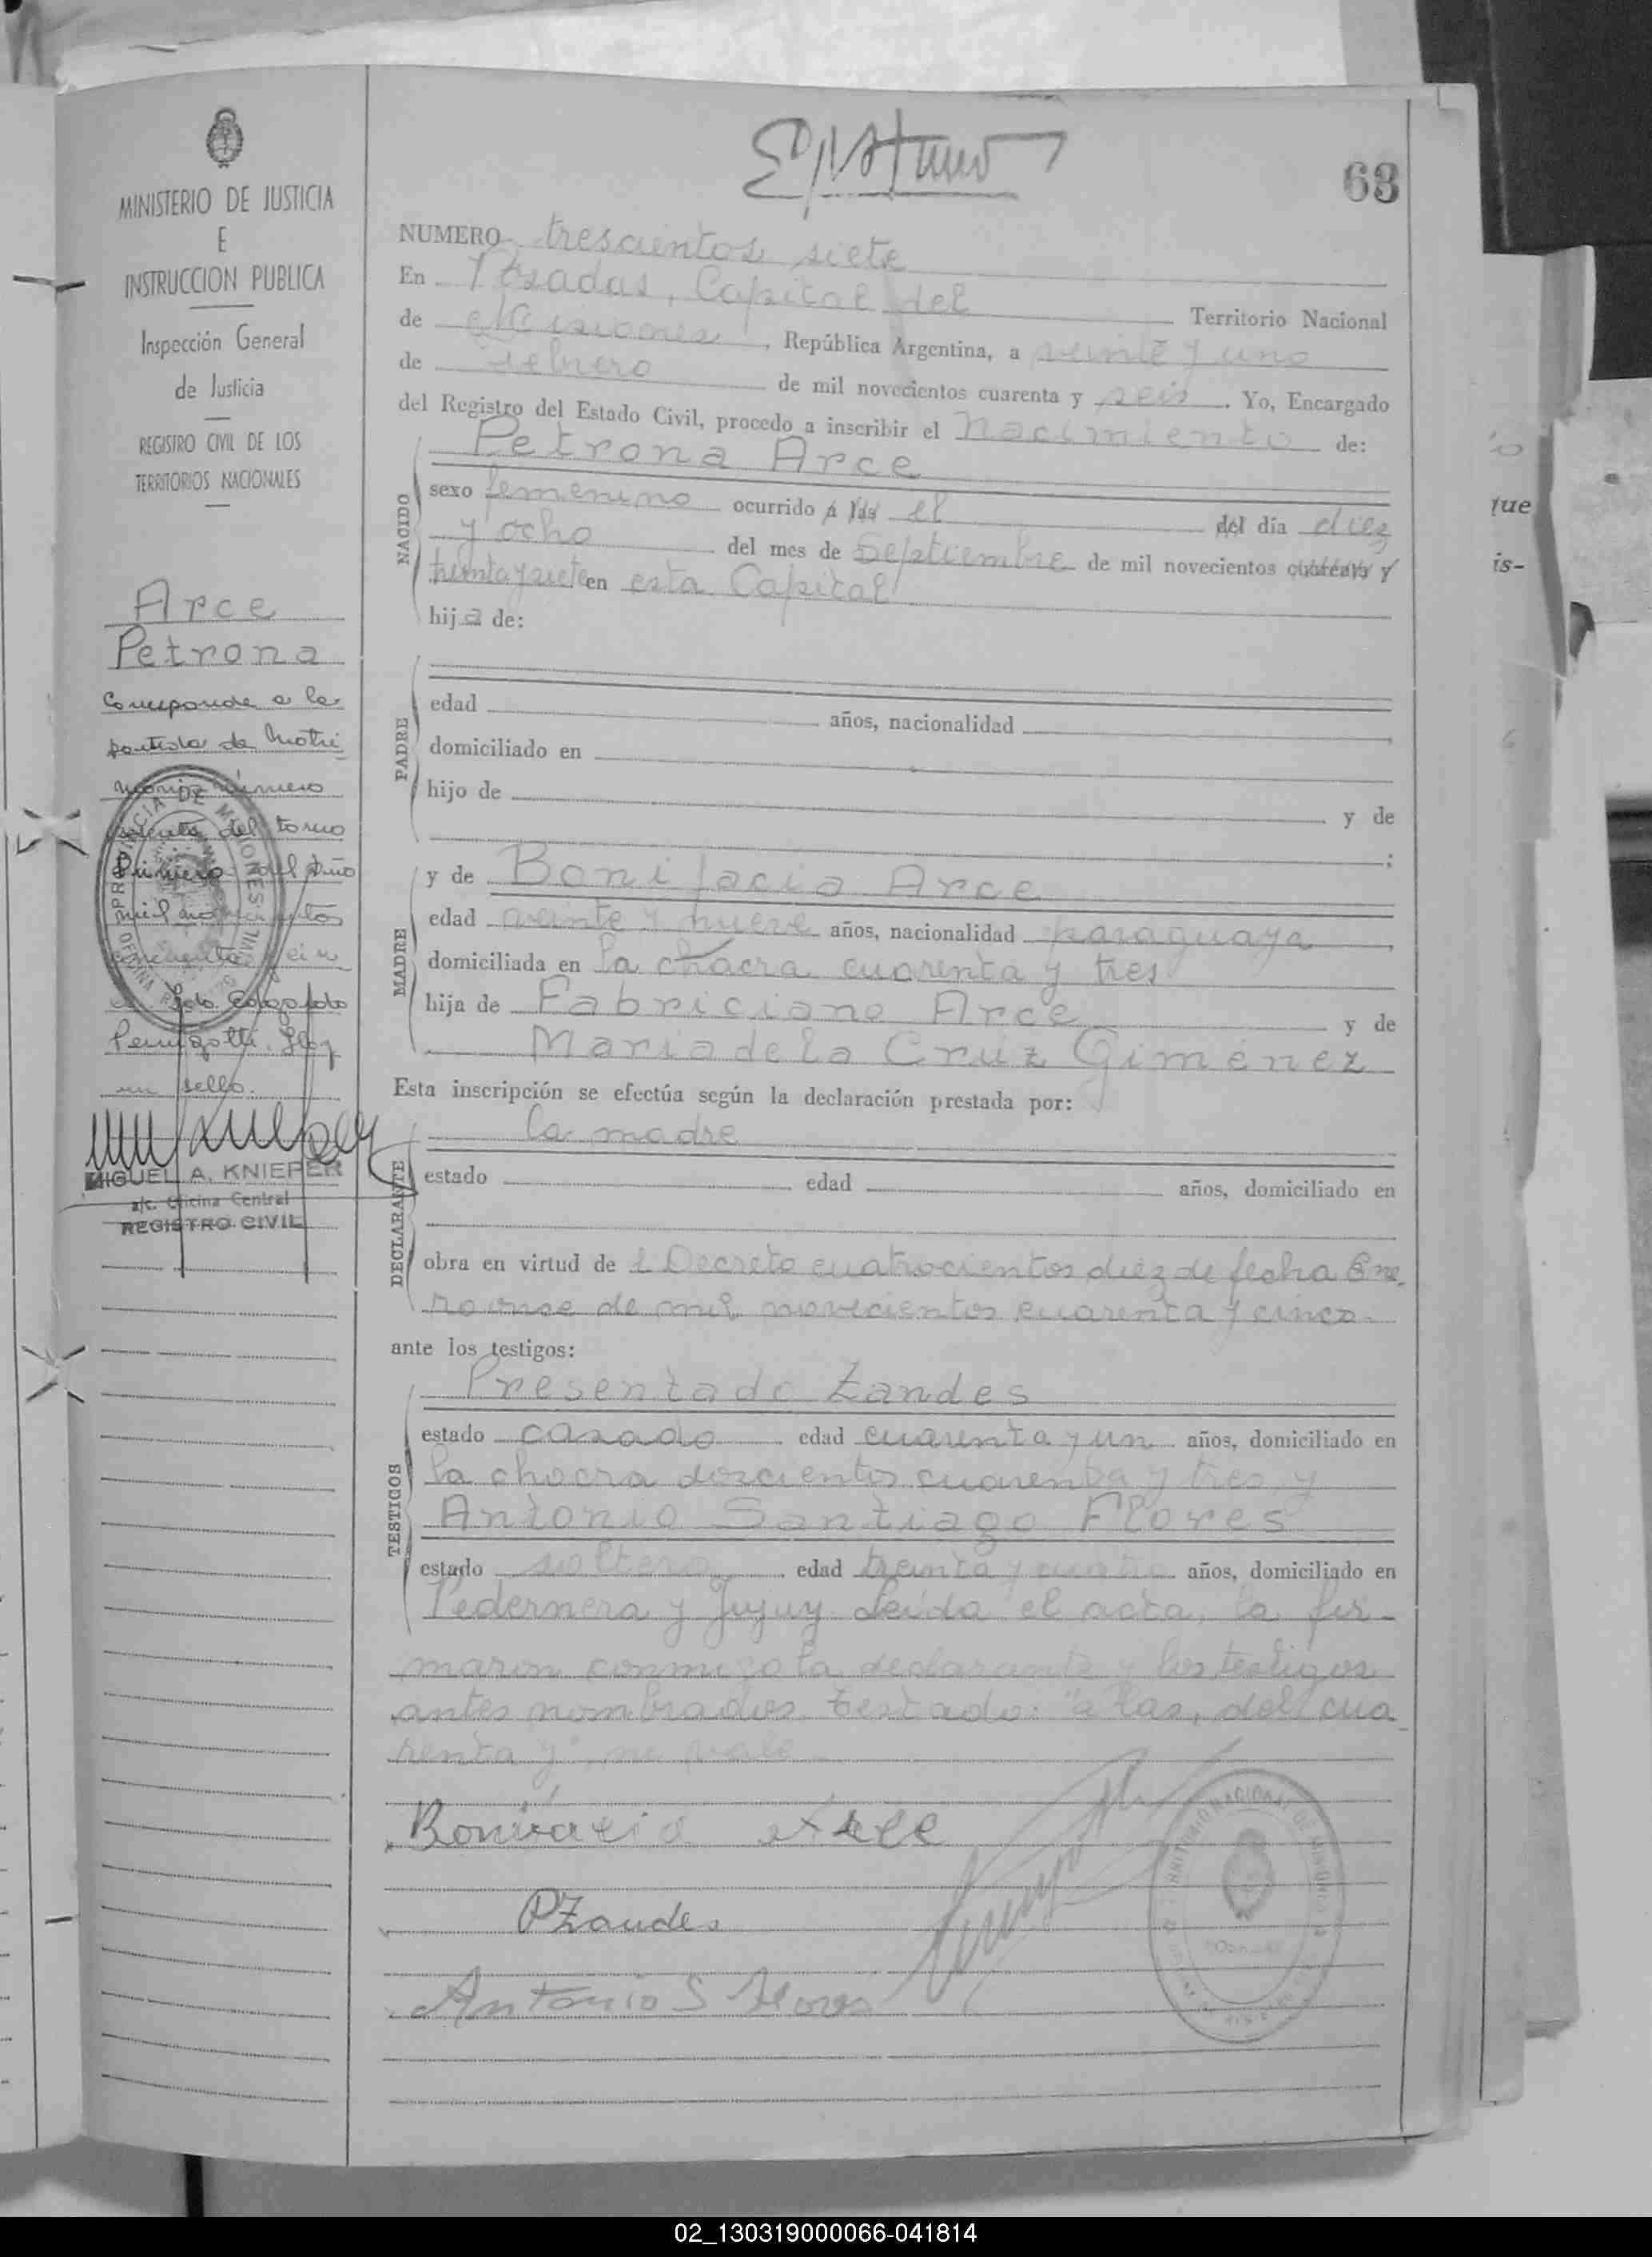 63
MINISTERIO DE JUSTICIA
E
INSTRUCCION PUBLICA
Inspección General
de Justicia
REGISTRO CIVIL DE LOS
TERRITORIOS NACIONALES
Arce
Petrona
Corresponde a la
partida de Matri
monio número
del tomo
Primero del Año
mil novecientos
cincuenta
Fdo. Edgardo
un sello.
MIGUEL A. KNIEPER
a/c. Oficina Central
REGISTRO CIVIL
NUMERO trescientos siete
En Posadas, Capital del Territorio Nacional
de Misiones, República Argentina, a veinte y uno
de Febrero de mil novecientos cuarenta y seis. Yo, Encargado
del Registro del Estado Civil, procedo a inscribir el Nacimiento de:
NACIDO
Petrona Arce
sexo femenino ocurrido a las el del día diez
y ocho del mes de Septiembre de mil novecientos cuarenta y
treinta y siete en esta Capital
hija de:
PADRE
edad años, nacionalidad
domiciliado en
hijo de y de
;
MADRE
y de Bonifacia Arce
edad veinte y nueve años, nacionalidad paraguaya
domiciliada en la chacra cuarenta y tres
hija de Fabriciano Arce y de
Maria de la Cruz Giménez
Esta inscripción se efectúa según la declaración prestada por:
DECLARANTE
la madre
estado edad años, domiciliado en
obra en virtud de l Decreto cuatrocientos diez de fecha Ene
ro once de mil novecientos cuarenta y cinco.
ante los testigos:
TESTIGOS
Presentado Zandes
estado casado edad cuarenta y un años, domiciliado en
la chacra doscientos cuarenta y tres y
Antonio Santiago Flores
estado soltero edad treinta y cuatro años, domiciliado en
Pedernera y Jujuy. Leída el acta, la fir-
maron conmigo la declarante y los testigos
antes nombrados. Testado: "a las, del, cua
renta y" no vale
Bonifacia Arce
PZandes
Antonio S Flores
que
is-
02_130319000066-041814